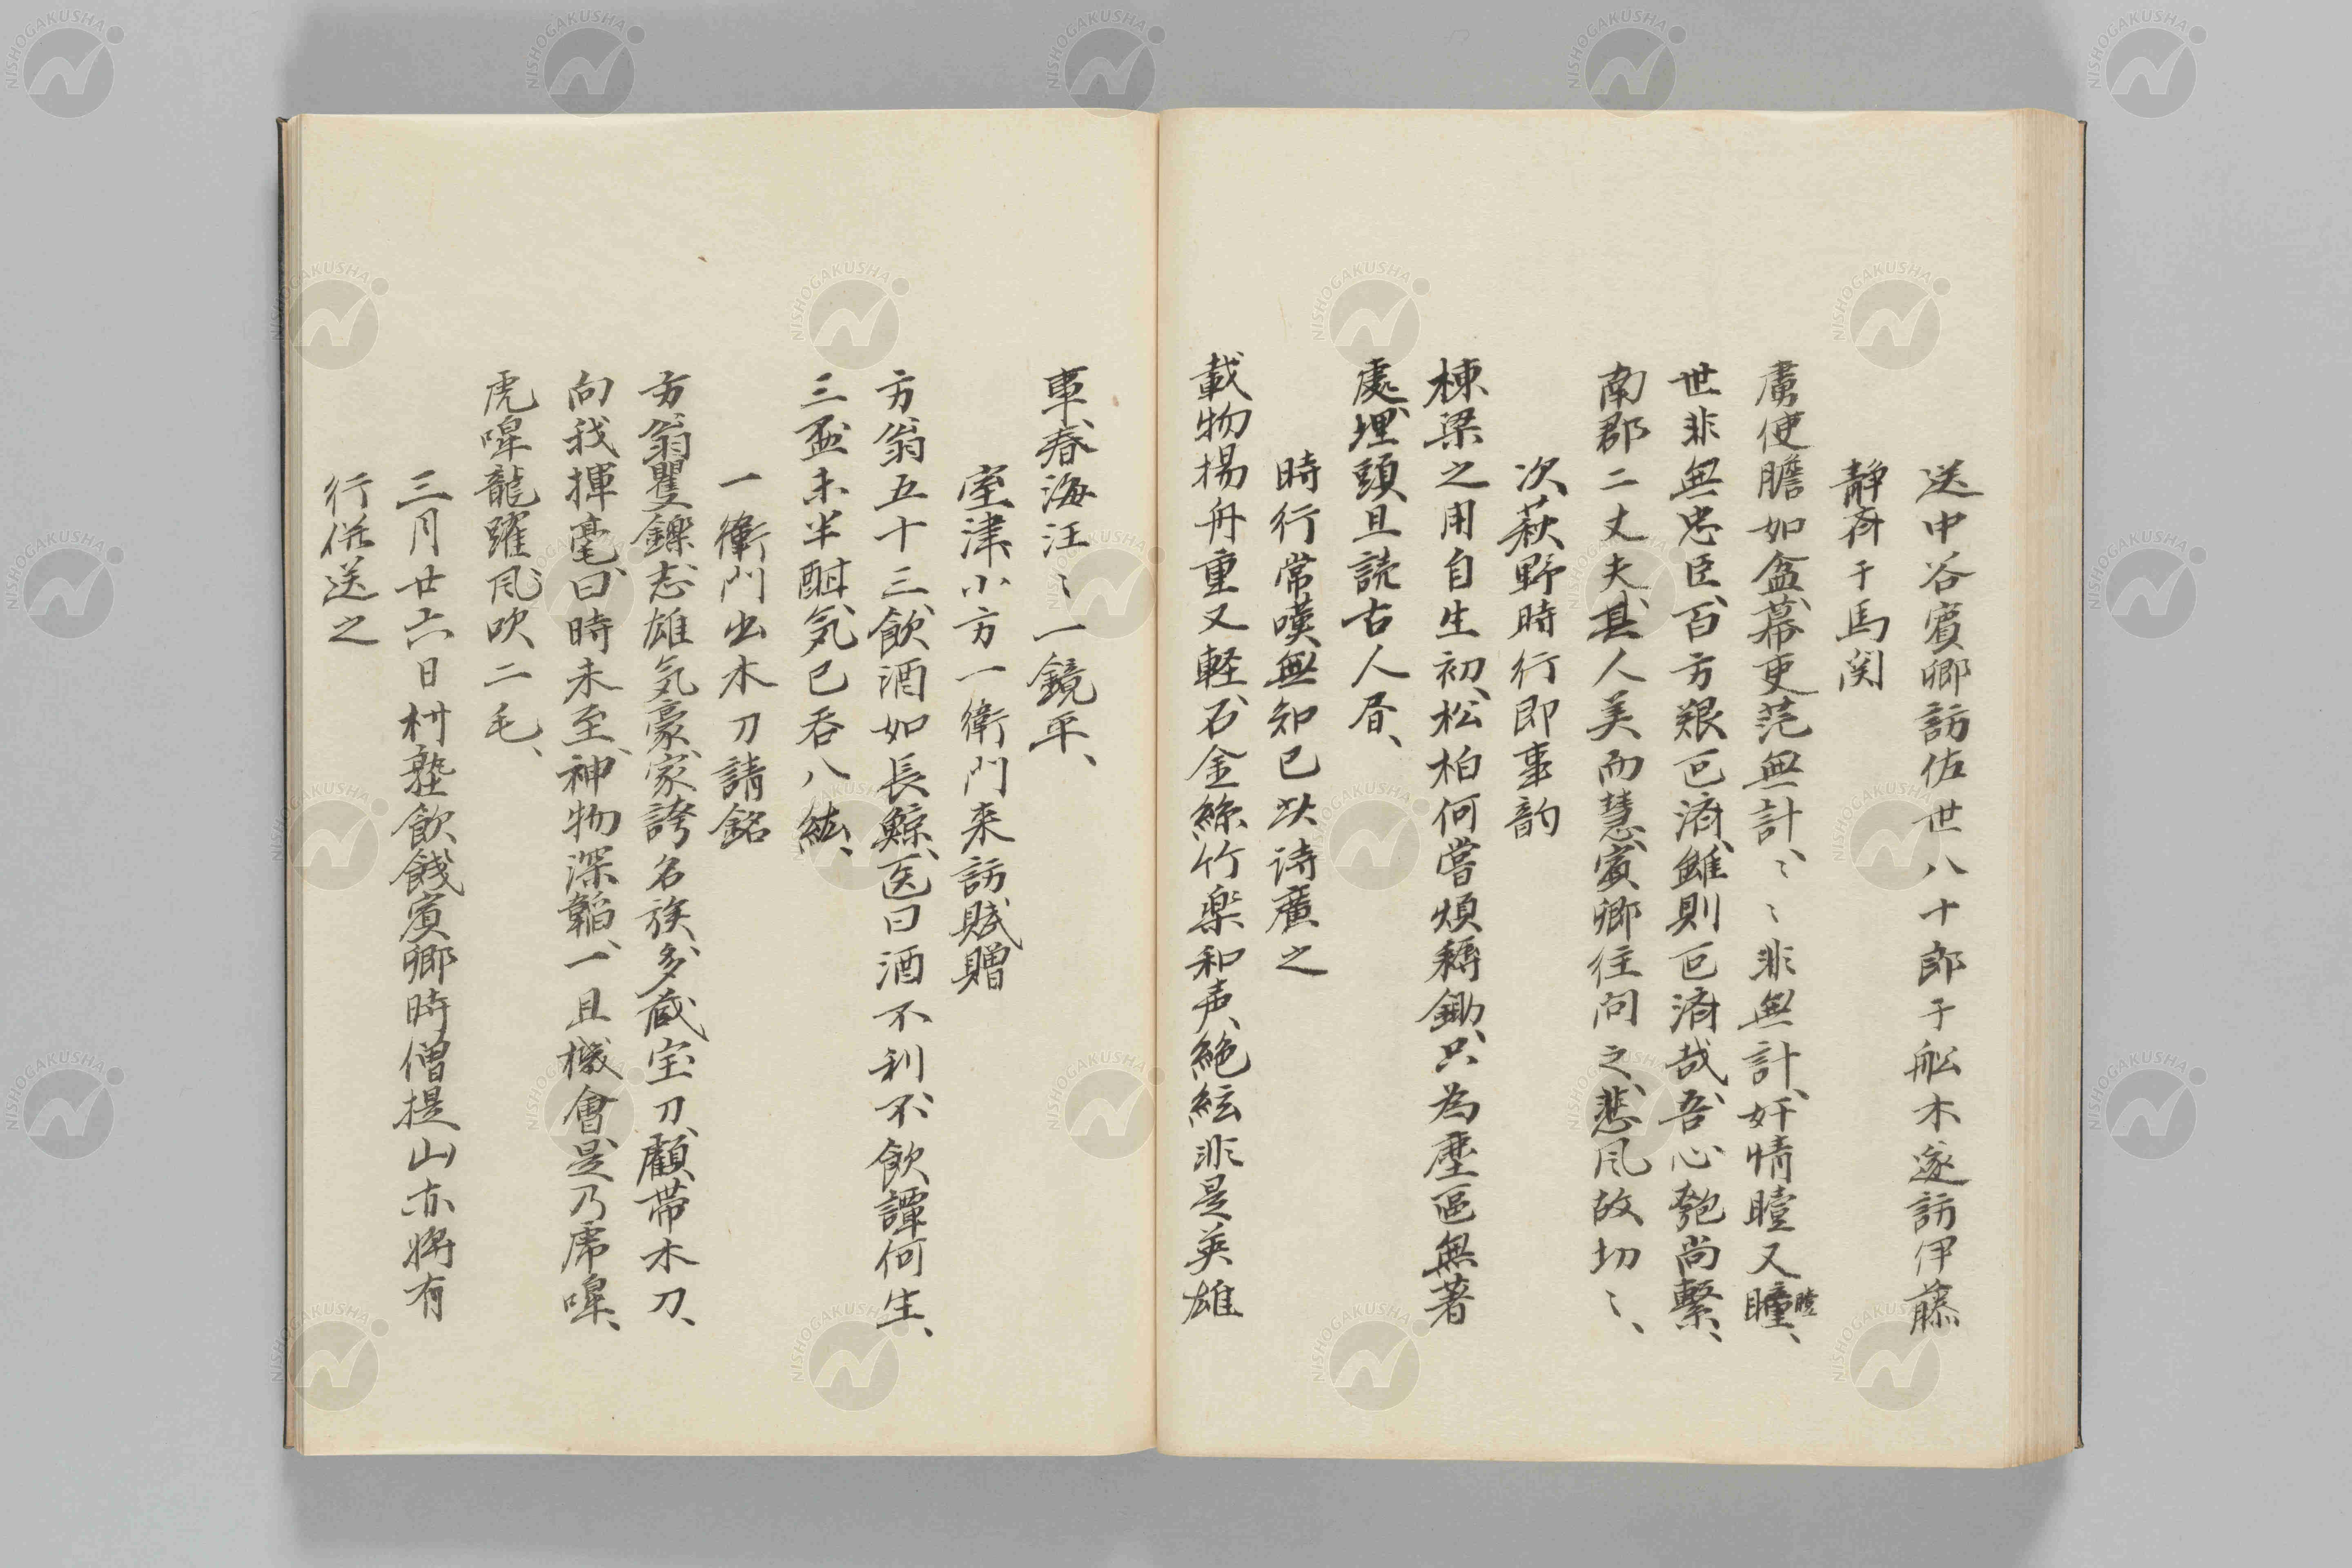 送中谷賓卿訪佐世八十郎于舩木遂訪伊藤
静斎于馬関
虜使膽如盆、幕吏茫無計、〻〻非無計、奸情曀又曈、
曀
世非無忠臣、百方艱匡済、雖則匡済哉、吾心匏尚繫、
南郡二丈夫、其人美而慧、賓卿往問之、悲風故切〻、
次萩野時行即事韵
棟梁之用自生初、松柏何嘗煩耨鋤、只為塵區無著
處、埋頭且読古人昏、
時行常嘆無知已以诗廣之
載物揚舟重又軽、石金絲竹楽和声、絶絃非是英雄
事、春海汪〻一鏡平、
室津小方一衛門来訪賦贈
方翁五十三、飲酒如長鯨、医曰酒不利、不飲譚何生、
三盃未半酣、気已呑八紘、
一衛門出木刀請銘
方翁矍鑠志雄気豪、家誇名族、多蔵宝刀、顧帯木刀、
向我揮毫、曰時未至、神物深韜、一旦機會、是乃虎嘷、
虎嘷龍躍、風吹二毛、
三月廿六日村塾飲餞賓卿時僧提山亦将有
行併送之
NISHOGAKUSHA